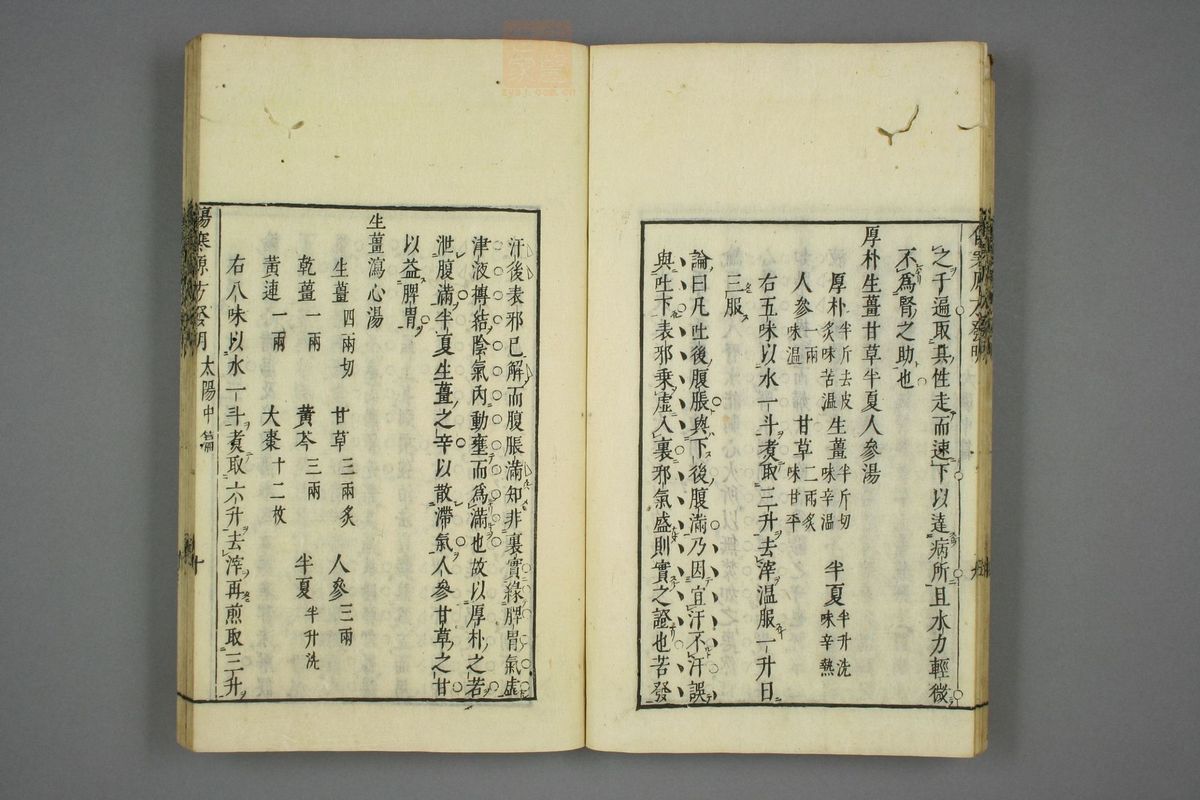 之千遍取其性走而速下以達病所且水力輕微
不爲腎之助也
厚朴生薑甘草半夏人參湯
厚朴半斤去皮炙味苦温 生薑半斤切味辛温 半夏半升洗味辛熱
人參一兩味温 甘草二兩炙味甘平
右五味以水一斗煑取三升去滓温服一升日
三服
論曰凡吐後腹脹與下後腹滿乃因宜汗不汗誤
與吐下表邪乗虚入裏邪氣盛則實之證也若發
汗後表邪已解而腹脹滿知非裏實緣脾胃氣虚
津液摶結陰氣内動壅而爲滿也故以厚朴之苦
泄腹滿半夏生薑之辛以散滯氣人參甘草之甘
以益脾胃
生薑瀉心湯
生薑四兩切 甘草三兩炙 人參三兩
乾薑一兩 黄芩三兩 半夏半升洗
黄連一兩 大棗十二枚
右八味以水一斗煑取六升去滓再煎取三升
傷寒源方發明 太陽中篇 十